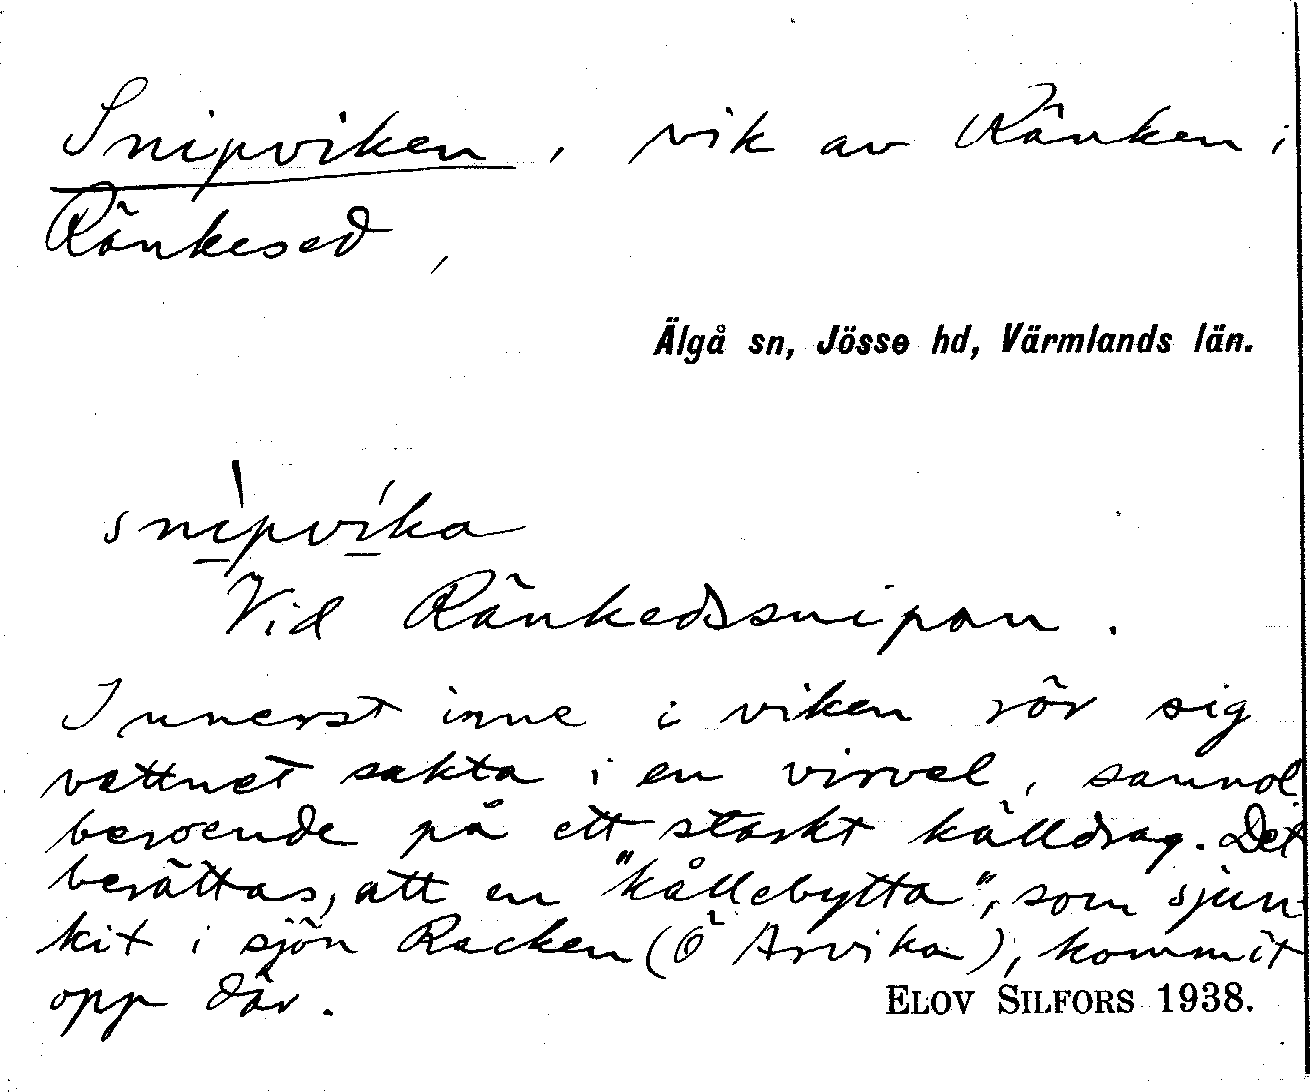 Snipviken, vik av Ränken i
Ränkesed,
Älgå sn, Jösse hd, Värmlands län.
snipvika
Vid Ränkedssnipan.
Innerst inne i viken rör sig
vattnet sakta i en virvel, sannol
beroende på ett starkt källdrag. Det
berättas, att en "kållebytta", som sjun-
kit i sjön Racken (Ö Arvika), kommit
opp där.
ELOV SILFORS 1938.